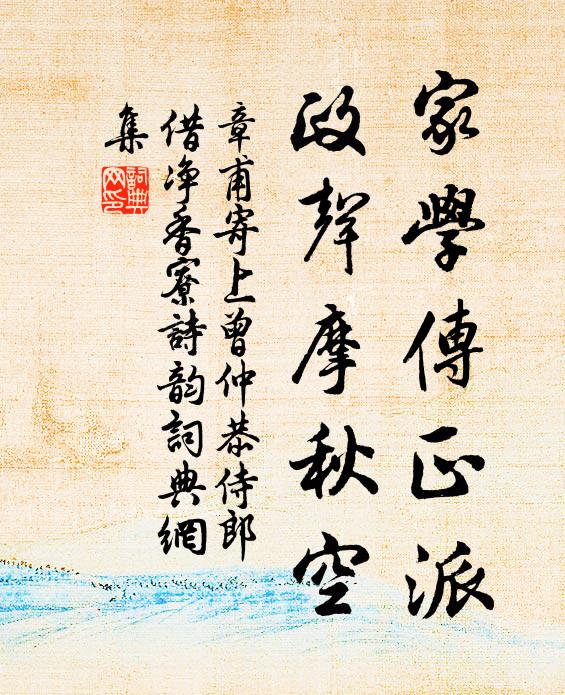 家學傳正派
政聲摩秋空
章甫寄上曾仲恭侍郎
借净香寮詩韵詞典網
集
詞典网印